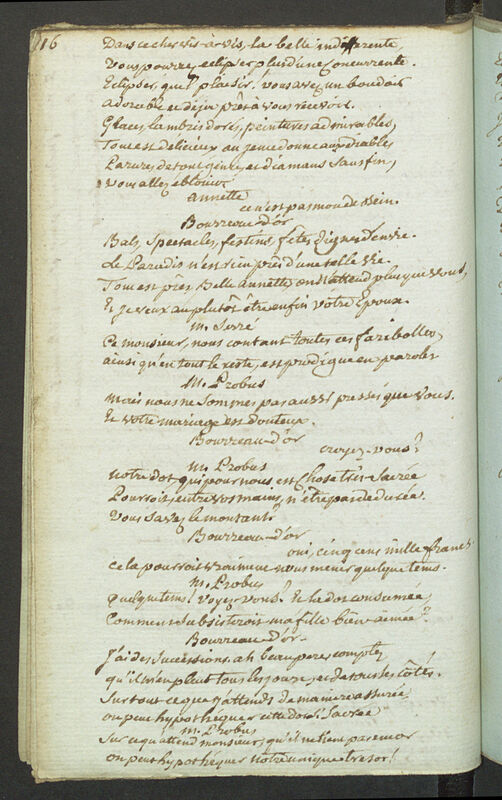 16
Dans ce cher vis-à-vis, la belle indifferente,
Vous pourrez eclipser plus d'une concurrente.
Eclipser, quel plaisir! vous avez un boudoir
adorable et déja prêt à vous recevoir.
Glaces, lambris dorés, peintures admirables,
Tout est delicieux
Parures de tout genre, et diamans sans fin,
Vous allez eblouir
annette
ce n'est pas mon dessein.
Bourreau-d'or
Bals, Spectacles, festins, fêtes dignes d'envie.
Le Paradis n'est rien près d'une telle vie.
Tout est prêt Belle annette on n'attend plus que vous,
Et je veux au plutôt être enfin votre Epoux.
m. Serré
Ce monsieur, nous contant toutes ces fariboles,
ainsi qu'en tout le reste, est prodigue en paroles
M. Probus
mais nous ne sommes pas aussi pressés que vous.
Et votre mariage est douteux.
Bourreau-d'or
croyez-vous?
m. Probus
notre dot qui pour nous est chose très sacrée
Pourroit, entre vos mains, n'être pas de durée.
Vous savez le montant?
Bourreau-d'or
oui, cinq cens mille francs
cela pourroit vraiment nous mener quelque tems.
m. Probus
quelque tems! voyez vous! Et la dot consumée,
Comment subsisteroit ma fille bien aimée?
Bourreau-d'or
J'ai des successions, ah beaupere, comptez
qu'il m'en pleut tous les jours, et de tous les côtés.
Surtout ce que j'attends de maniere assurée
on peut hypothequer cette dot si sacrée
m. Probus
Sur ce qu'attend monsieur, qu'il ne tient pas encor
on peut hypothequer notre unique tresor!